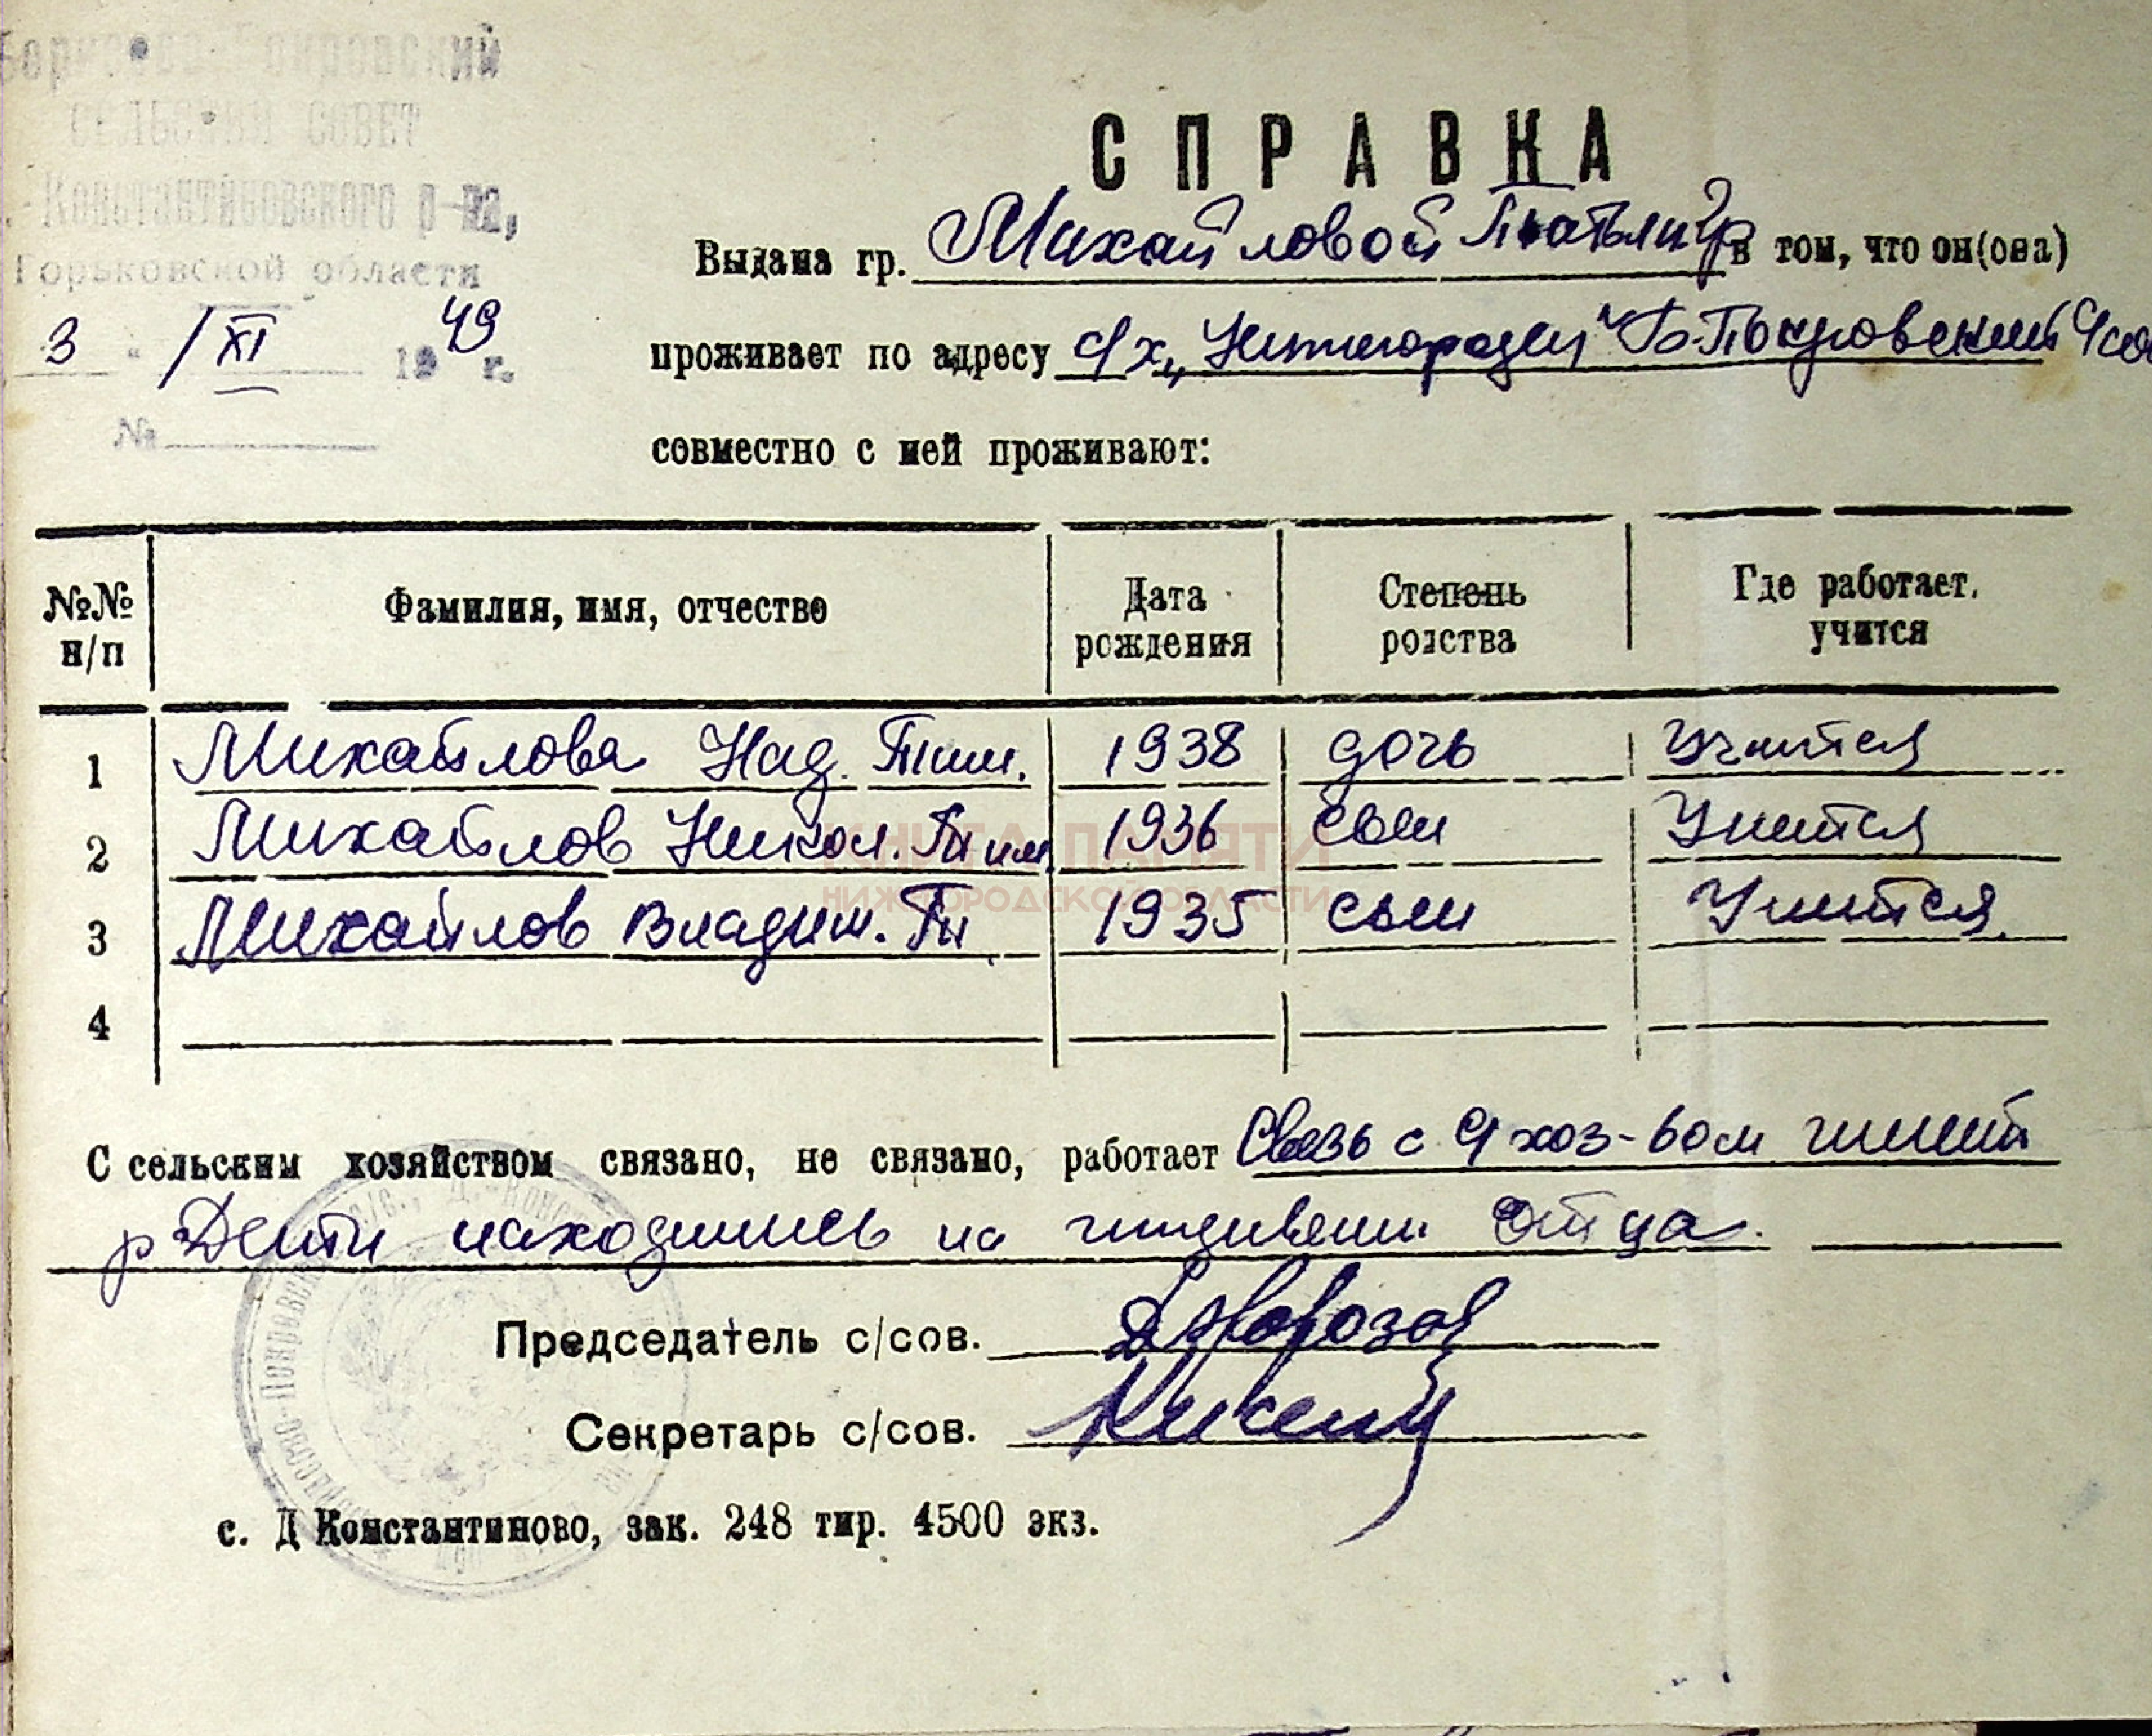 Борисово-Покровский
СЕЛЬСКИЙ СОВЕТ
Константиновского р-на,
Горьковской области
3 / XI 1949 г.
№
СПРАВКА
Выдана гр. Михайловой Татьян в том, что он(она)
проживает по адресу с/х „Нижегородец" Б-Покровский с/сов
совместно с ней проживают:
№№ н/п Фамилия, имя, отчество Дата рождения Степень родства Где работает, учится
1 Михайлова Над. Тим. 1938 дочь Учится
2 Михайлов Никол. Тим 1936 сын Учится
КНИГА ПАМЯТИ
НИЖЕГОРОДСКОЙ ОБЛАСТИ
3 Михайлов Владим. Ти 1935 сын Учится
4
С сельским хозяйством связано, не связано, работает Связь с с/хоз-вом
Дети находились на иждивении отца.
Председатель с/сов.
Секретарь с/сов.
с. Д Константиново, зак. 248 тир. 4500 экз.